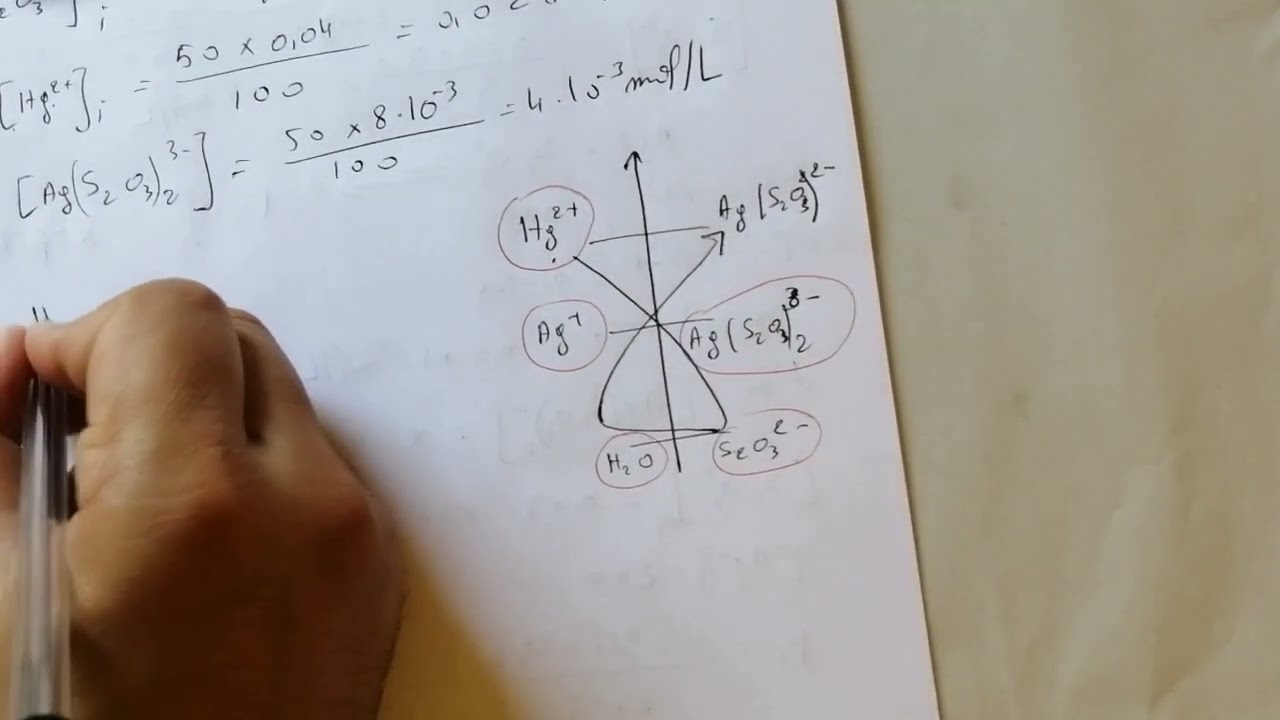 O₃ ]ᵢ
[Hg²⁺]ᵢ = 50 × 0,04 / 100 = 0,02
[Ag(S₂O₃)₂³⁻] = 50 × 8·10⁻³ / 100 = 4·10⁻³ mol/L
Hg²⁺ Ag(S₂O₃)²⁻
Ag⁺ Ag(S₂O₃)₂³⁻
H₂O S₂O₃²⁻